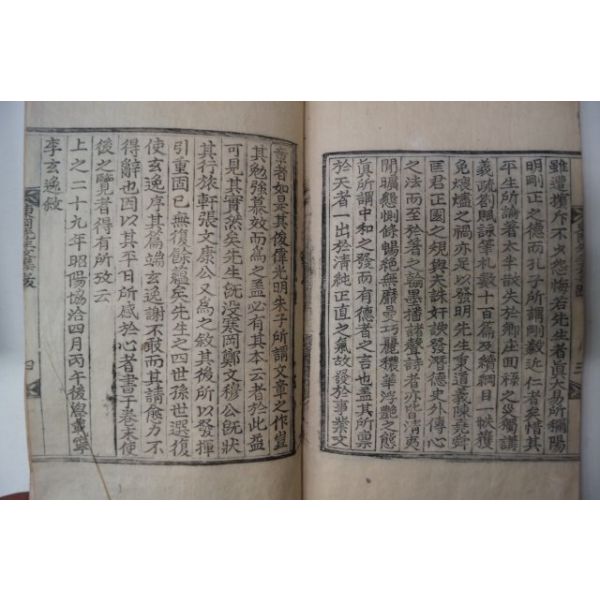 雖遭擯斥不少怨悔若先生者眞大易所稱陽
明剛正之德而孔子所謂剛毅近仁者矣惜其
平生所論著太半失於座回祿之災獨講
義疏劄賦詠筆札數十百篇及續綱目一帙獲
免煨燼之禍亦足以發明先生重道義陳堯舜
匡君正國之規與夫誅奸諛發潛德史外傳心
之法而至於著之論墨播諸聲詩者亦皆清夷
閒曠懇惻條暢絕無靡曼巧麗穠華浮艷之態
眞所謂中和之發而有德者之言也蓋其所稟
於天者一出於清純正直之氣故發於事業文
三
章者如是其俊偉光明朱子所謂文章之作豈
其勉強慕效而爲之蓋必有其本云者於此益
可見其實然矣先生旣沒寒岡鄭文穆公旣狀
其行旅軒張文康公又爲之敘其後所以發揮
引重固已無復餘蘊矣先生之四世孫世選復
使玄逸序其篇端玄逸謝不敢而其請愈力不
得辭也因以其平日所感於心者書于卷末使
後之覽者得有所攷云
上之二十九年昭陽協洽四月丙午後學載寧
李玄逸敘
四